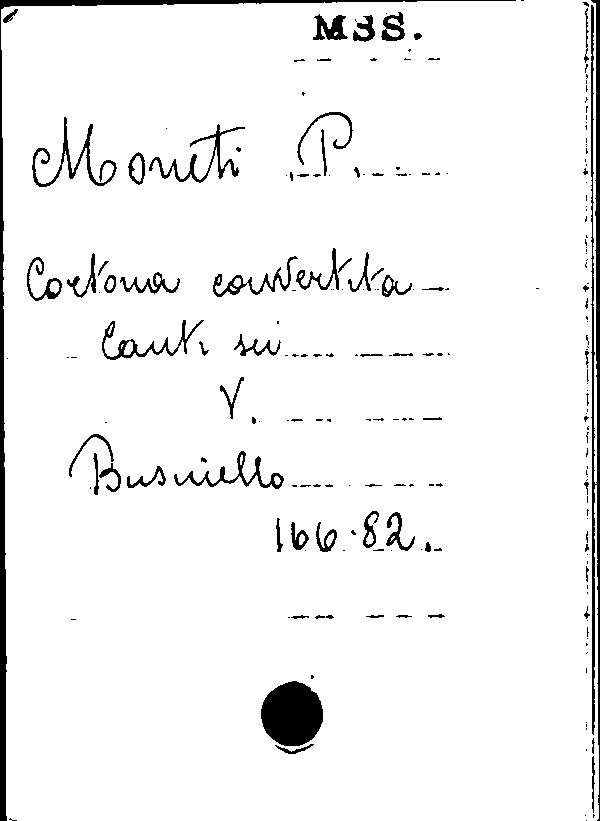 MSS.
Moneti P.
Cortona convertita
Canti sei
V.
Busniello
166.82.